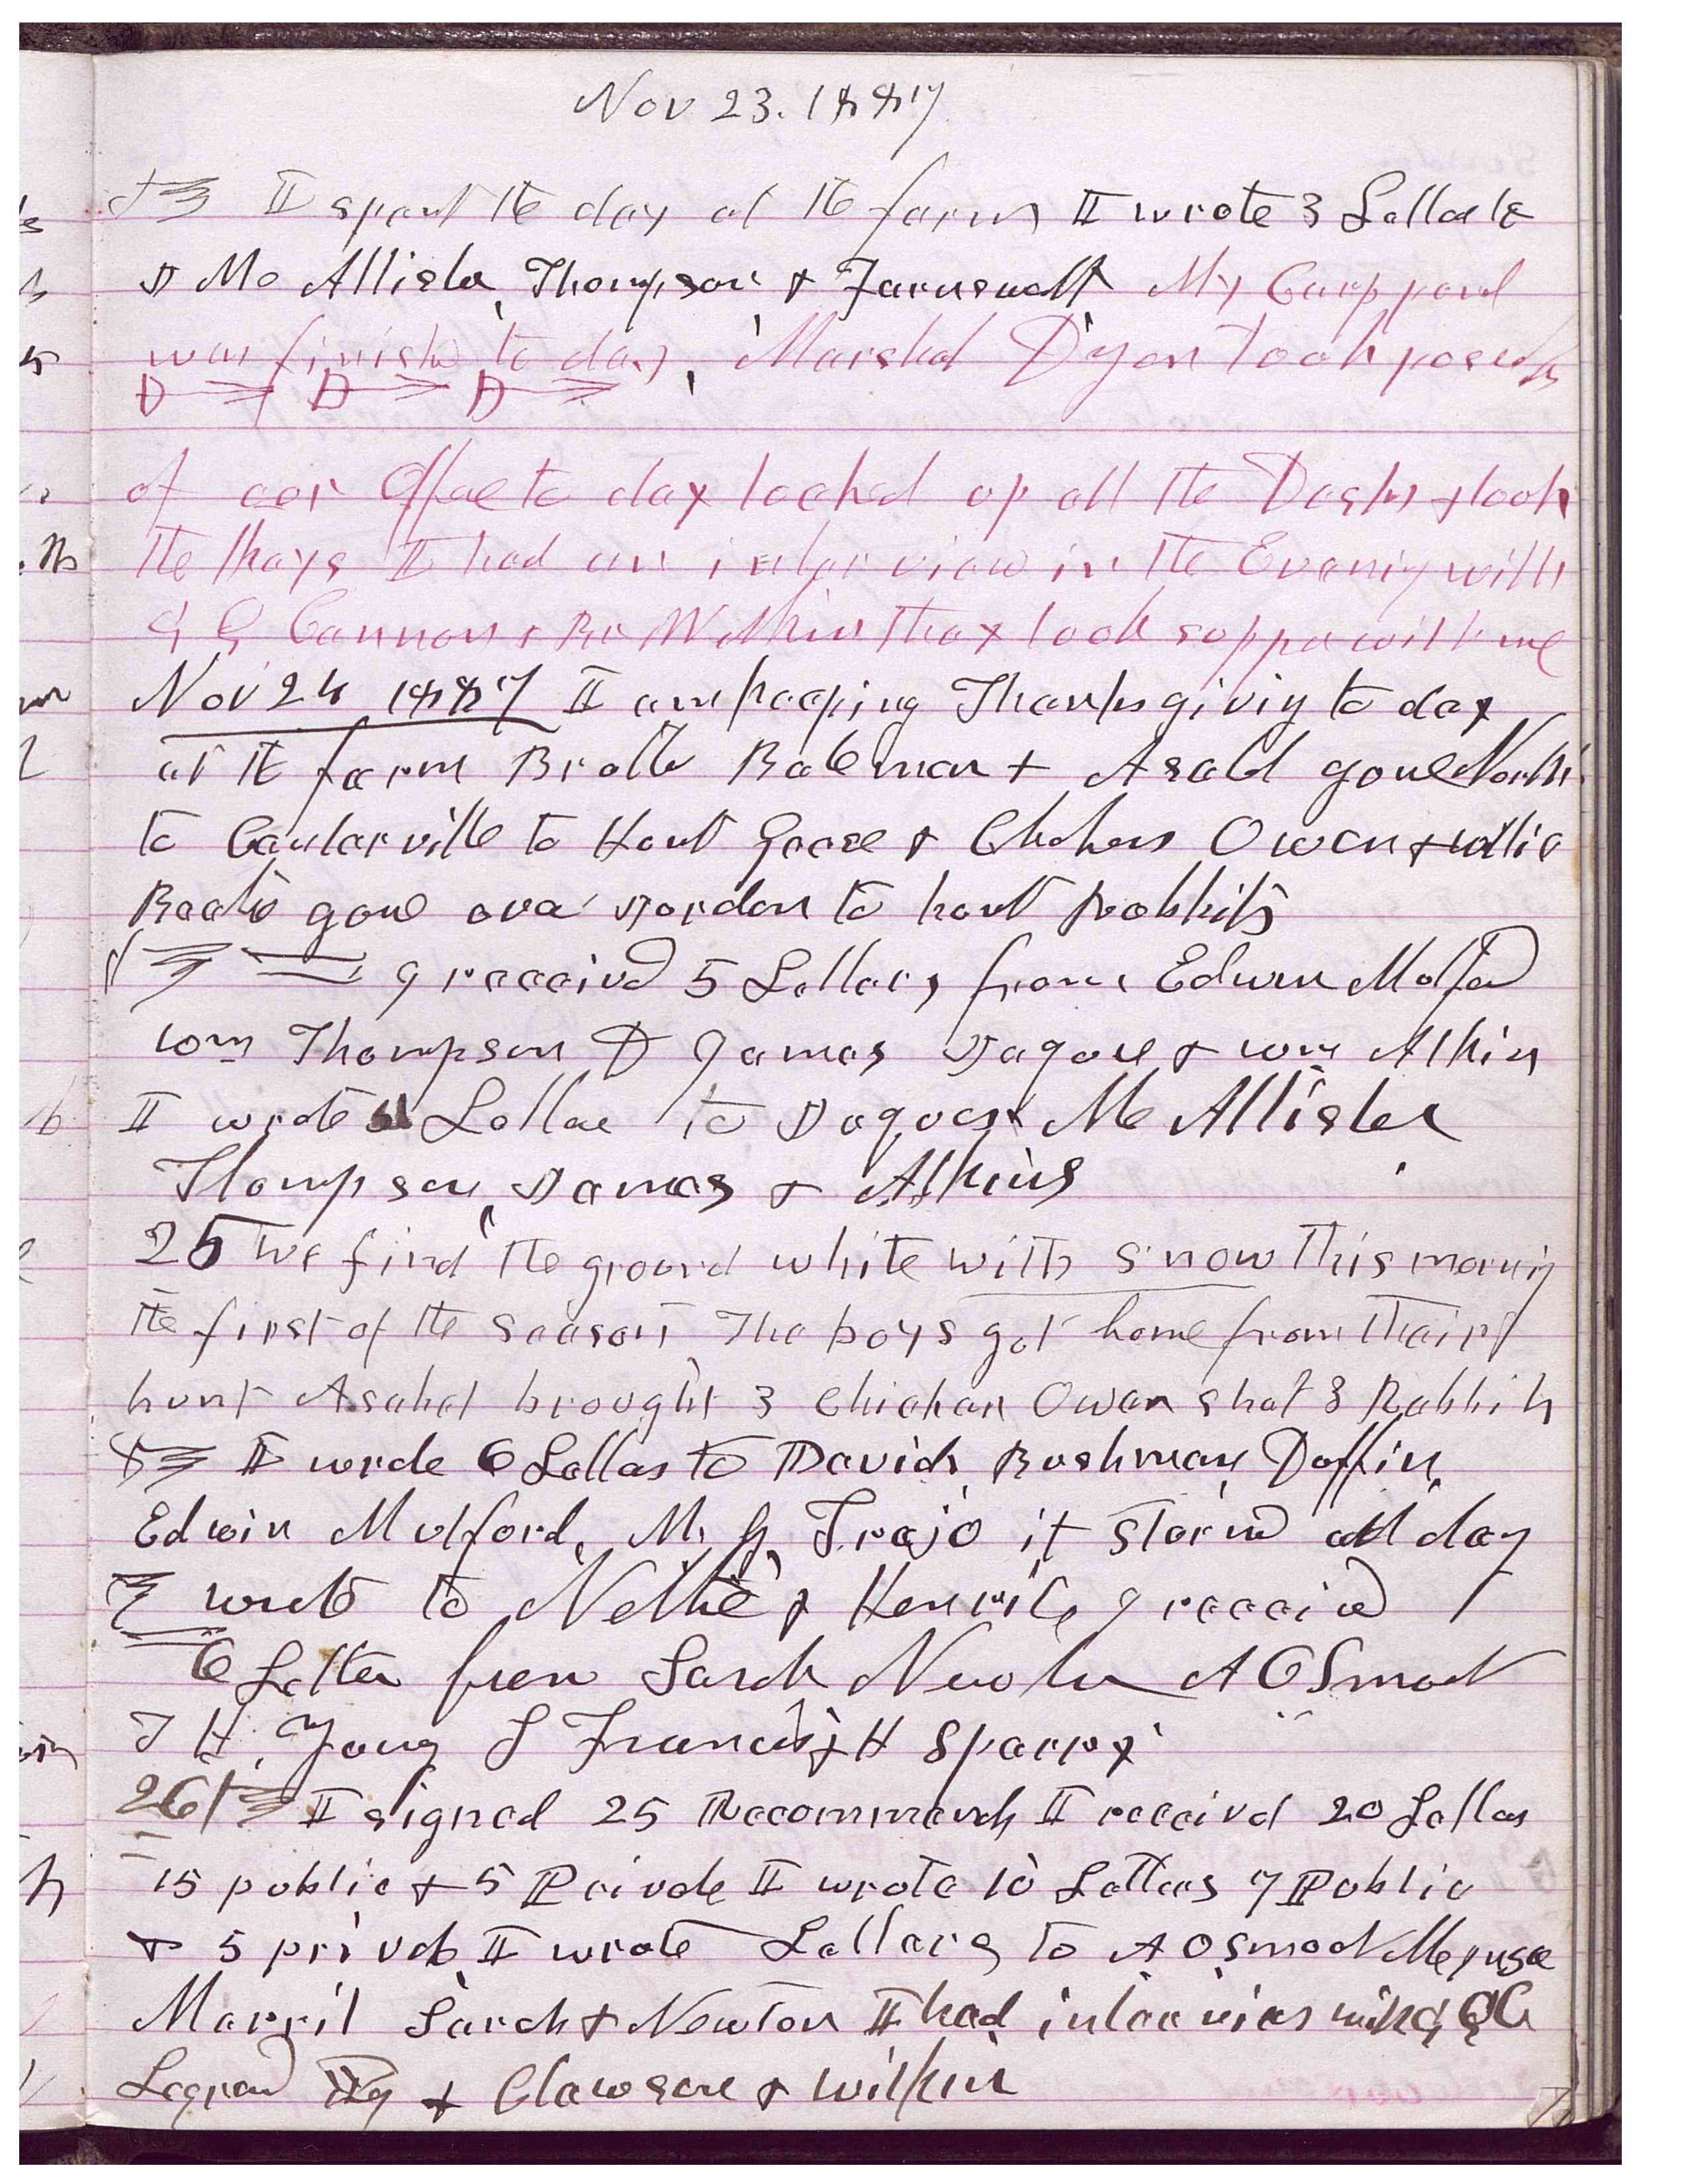 Nov 23. 1887
I spent the day at the farm I wrote 3 Letters to
J Mc Allister, Thompson & Farnsworth My Carp pond
was finishd to day, Marshal Dyer took possess
of our Office to day locked up all the Desks & took
the Keys I had an interview in the Evening with
G Q Cannon & Br Wilkin they took supper with me
Nov 24 1887 I am keeping Thanksgiving to day
at the farm Brother Bateman & Asahel gone North
to Centerville to Hunt Geese & Chickens Owen & Willie
gone over Jordan to hunt Rabbits
I receivd 5 Letters from Edwin
Wm Thompson D James & Wm Atkin
I wrote Letter to Mc Allister
Thompson, James & Atkins
25 We find the ground white with snow this morning
the first of the season The boys got home from their
hunt Asahel brought 3 Chicken Owen shot 3 Rabbits
I wrote 6 Letters to David, Bushman, Daffin,
Edwin Mufford, M. G. Trejo it stormd all day
wrote to Nellie & I receivd
6 Letter from Sarah Newton A O Smoot
J H. Young S Francis & H Sperry
26 I signed 25 Recommends I receivd 20 Letters
15 public & 5 Private I wrote 10 Letters 7 Public
& 5 private I wrote Letters to A O Smoot
Merril Sarah & Newton I had interview with G Q C
Legrand Yg & Clawson & Wilkin